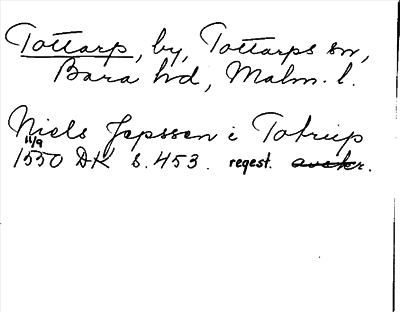 Tottarp, by, Tottarps sn,
Bara hd, Malm. l.
Niels Jepssen i Totrup
11/9
1550 DK s. 453. regest. avskr.